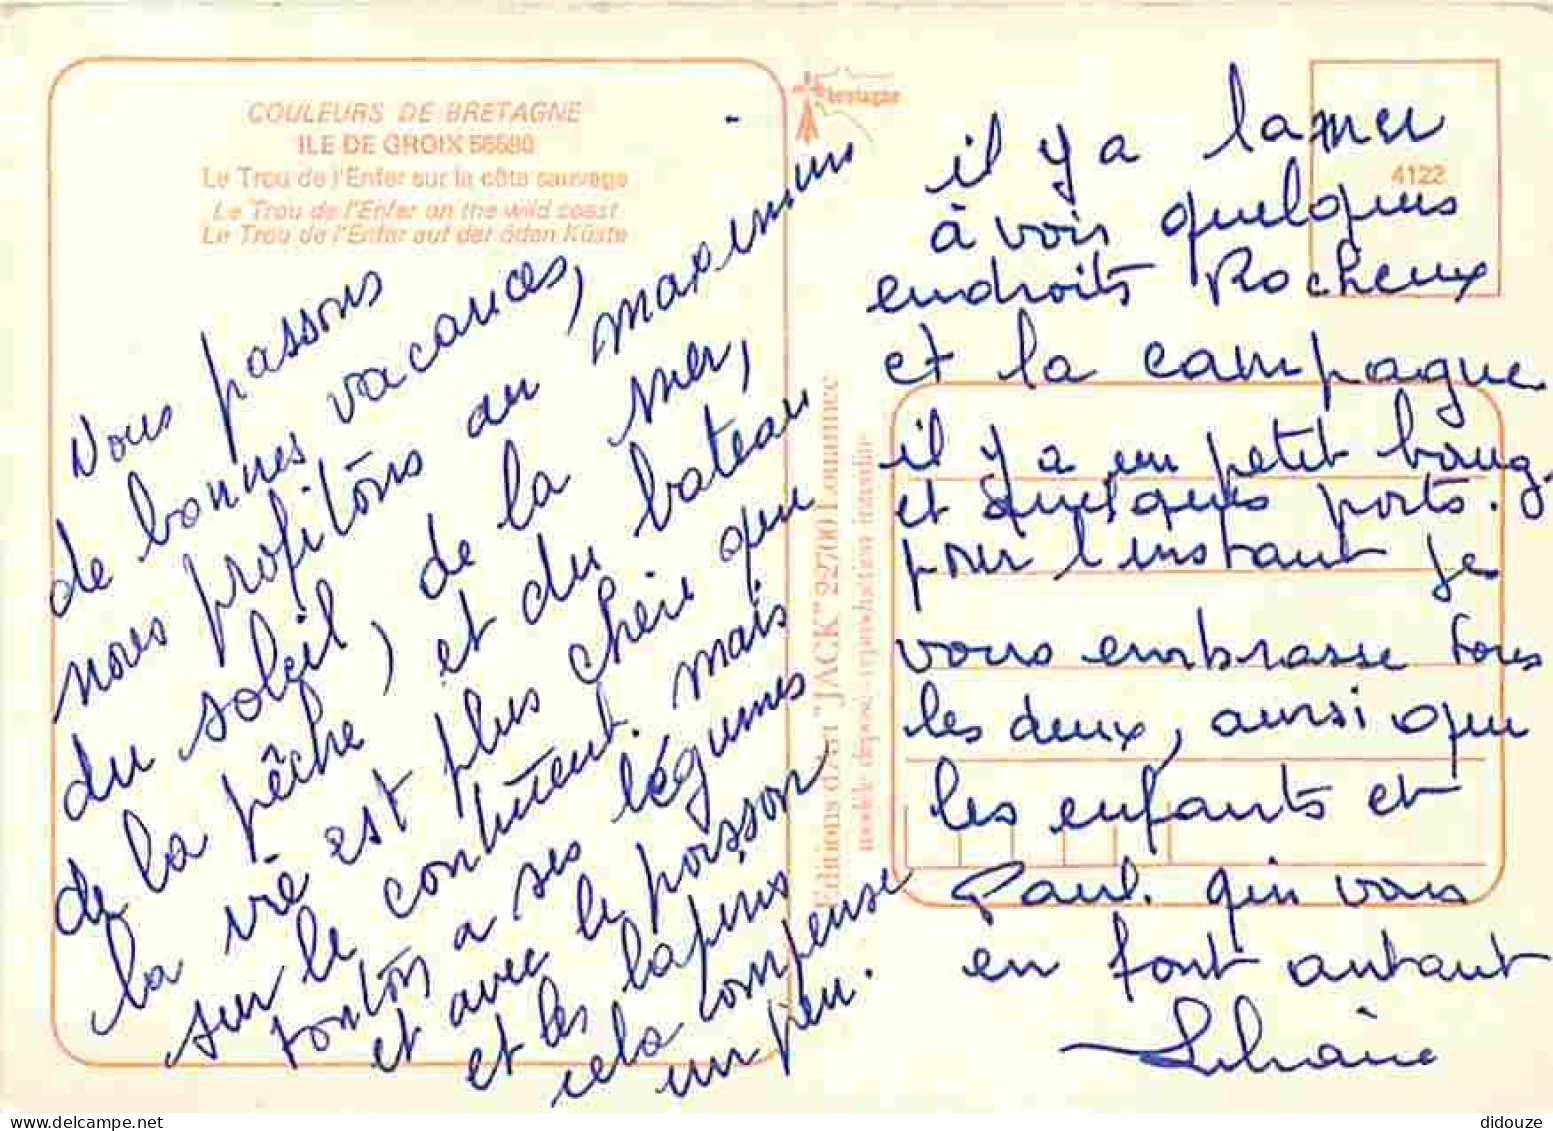 COULEURS DE BRETAGNE
ILE DE GROIX 56590
Le Trou de l'Enfer sur la côte sauvage
Le Trou de l'Enfer on the wild coast
Le Trou de l'Enfer auf der öden Küste
bretagne
4122
Nous passons
de bonnes vacances,
nous profitons au maximum
du soleil, de la mer,
de la pêche, et du bateau
la vie est plus chère que
sur le continent. mais
tonton a ses légumes
et avec le poisson
et les lapins
cela compense
un peu.
Editions d'Art "JACK" 22700 Louannec
modèle déposé - reproduction interdite
il y a la mer
à voir quelques
endroits Rocheux
et la campagne
il y a un petit bourg,
et quelques ports.
pour l'instant je
vous embrasse tous
les deux, aussi que
les enfants et
Paul. qui vous
en font autant
Liliane
didouze